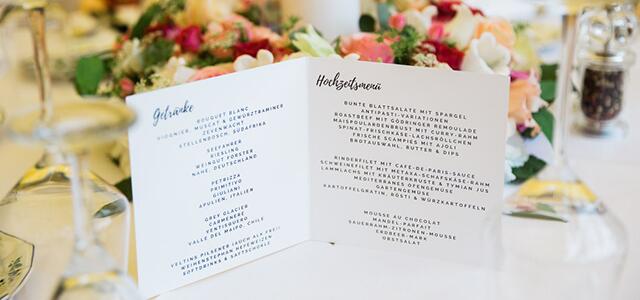 Getränke
BOUQUET BLANC
VIOGNIER, MUSCAT & GEWÜRZTRAMINER
ZEVENWACHT
STELLENBOSCH, SÜDAFRIKA
SEEFAHRER
RIESLING
WEINGUT FÖRSTER
NAHE, DEUTSCHLAND
PEPIZZA
PRIMITIVO
GIULIANI
APULIEN, ITALIEN
GREY GLACIER
CARMENÈRE
VENTISQUERO
VALLE DEL MAIPO, CHILE
VELTINS PILSENER (AUCH ALK.FREI)
WEIHENSTEPHAN HEFEWEIZEN
SOFTDRINKS & SAFTSCHORLE
Hochzeitsmenü
BUNTE BLATTSALATE MIT SPARGEL
ANTIPASTI-VARIATIONEN
ROASTBEEF MIT GÖDRINGER REMOULADE
MAISPOULARDENBRUST MIT CURRY-RAHM
SPINAT-FRISCHKÄSE-LACHSRÖLLCHEN
FRISCHE SCAMPIES MIT AJOLI
BROTAUSWAHL, BUTTER & DIPS
RINDERFILET MIT CAFÉ-DE-PARIS-SAUCE
SCHWEINEFILET MIT METAXA-SCHAFSKÄSE-RAHM
LAMMLACHS MIT KRÄUTERKRUSTE & TYMIAN JUS
MEDITERRANES OFENGEMÜSE
GARTENGEMÜSE
KARTOFFELGRATIN, RÖSTI & WÜRZKARTOFFELN
MOUSSE AU CHOCOLAT
MANDEL-PARFAIT
SAUERRAHM-ZITRONEN-MOUSSE
ERDBEER-MARK
OBSTSALAT